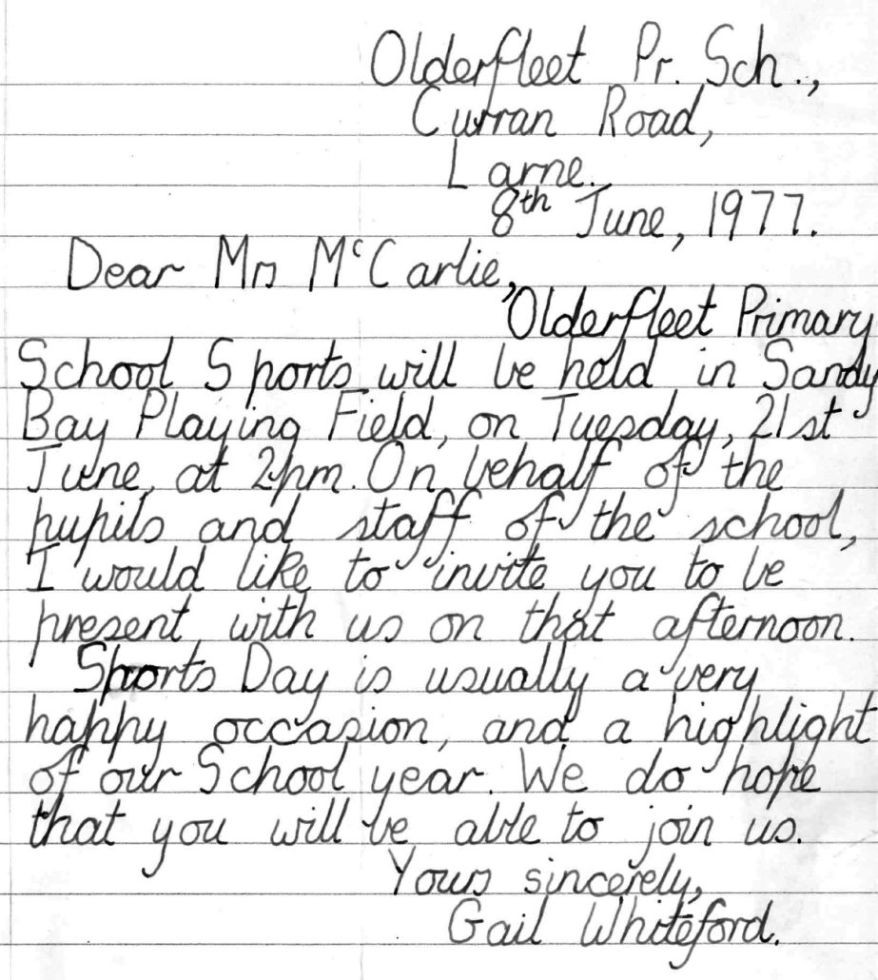 Olderfleet Pr. Sch.,
Curran Road,
Larne.
8th June, 1977.
Dear Mrs McCarlie,
Olderfleet Primary
School Sports will be held in Sandy
Bay Playing Field, on Tuesday, 21st
June, at 2pm. On behalf of the
pupils and staff of the school,
I would like to invite you to be
present with us on that afternoon.
Sports Day is usually a very
happy occasion, and a highlight
of our School year. We do hope
that you will be able to join us.
Yours sincerely,
Gail Whiteford.